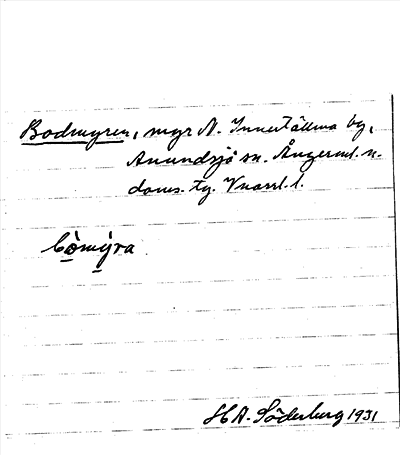 Bodmyren, myr N. Innertällmo by,
Anundsjö sn. Ångerml. n.
doms. tg. Vnorrl. l.
bòmýra
H.A. Söderberg 1931